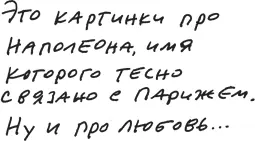 Это картинки про
Наполеона, имя
которого тесно
связано с Парижем.
Ну и про любовь...